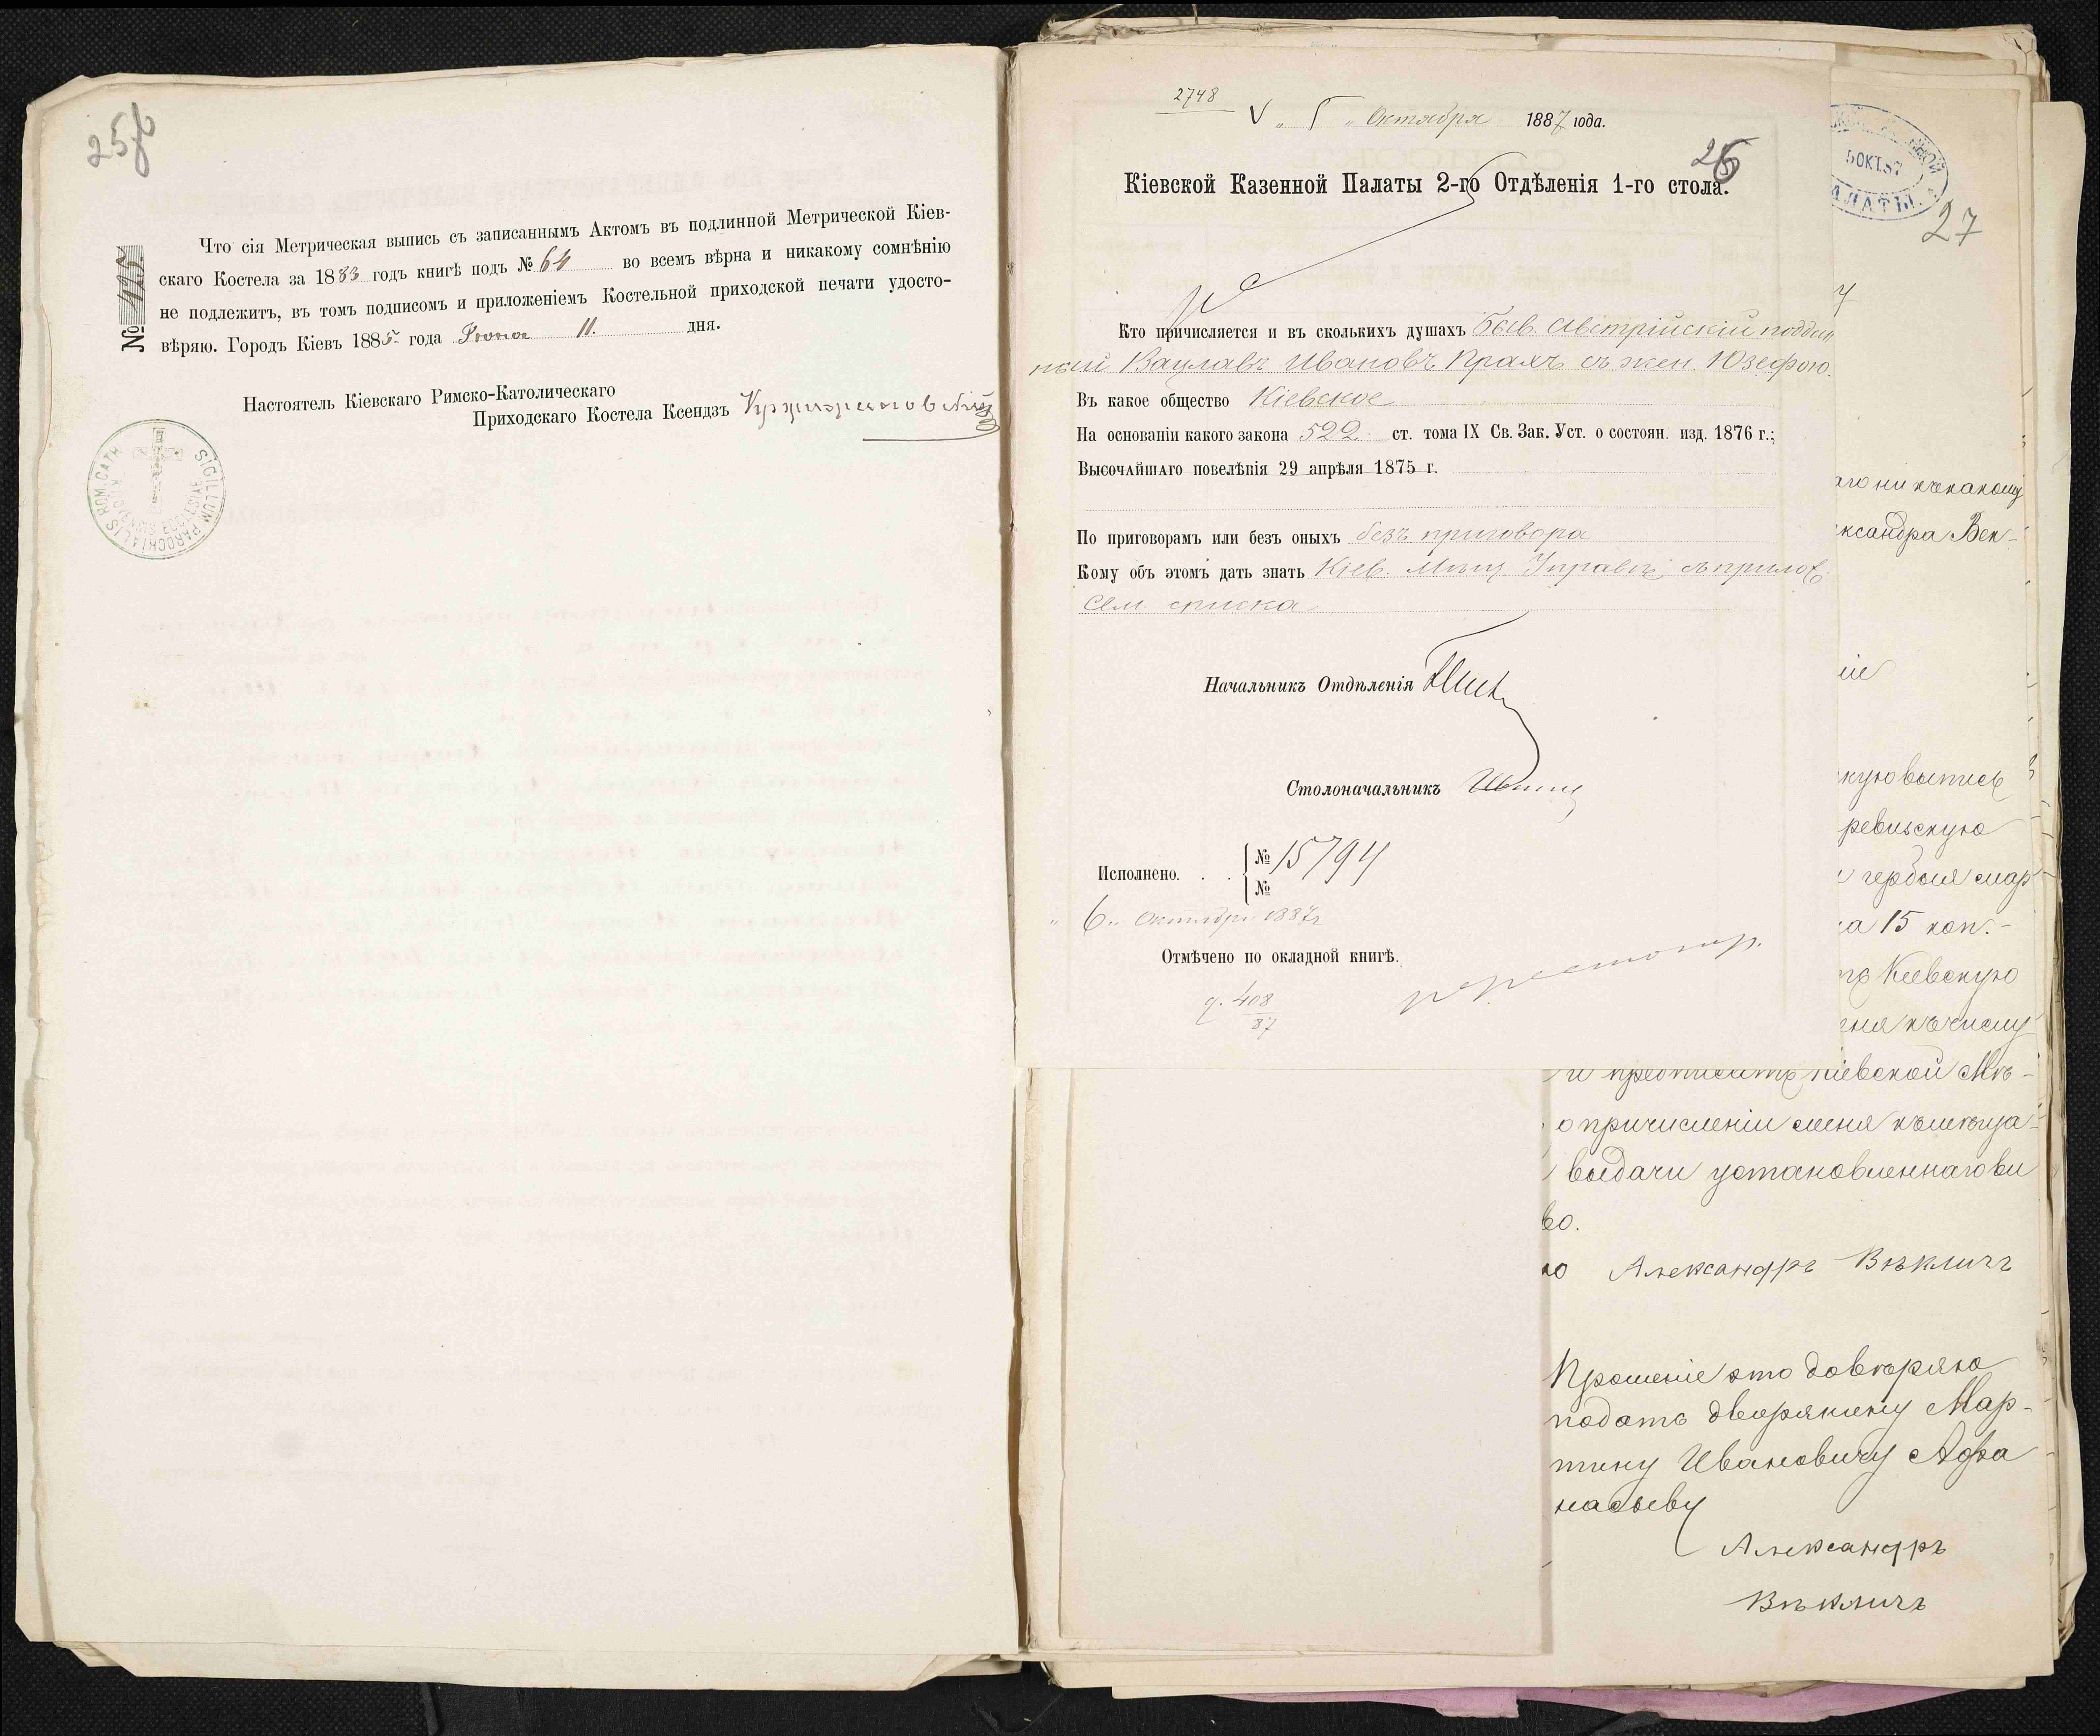 25б
№ 425.
Что сія Метрическая выпись съ записаннымъ Актомъ въ подлинной Метрической Кіев-
скаго Костела за 1883 годъ книгѣ подъ № 64 во всемъ вѣрна и никакому сомнѣнію
не подлежитъ, въ томъ подписомъ и приложеніемъ Костельной приходской печати удосто-
вѣряю. Городъ Кіевъ 1885 года Іюня 11. дня.
Настоятель Кіевскаго Римско-Католическаго
Приходскаго Костела Ксендзъ
SIGILLUM PAROCHIALIS ROM. CATH
2748
V „ 5 „ Октября 1887 года.
26
Кіевской Казенной Палаты 2-го Отдѣленія 1-го стола.
Кто причисляется и въ сколькихъ душахъ Быв. Австрійскій поддан
ный Вацлавъ Ивановъ Прахъ съ жен. Юзефою.
Въ какое общество Кіевское
На основаніи какого закона 522 ст. тома IX Св. Зак. Уст. о состоян. изд. 1876 г.;
Высочайшаго повелѣнія 29 апрѣля 1875 г.
По приговорамъ или безъ оныхъ безъ приговора
Кому объ этомъ дать знать Кіев. Мѣщ. Управѣ съ прилож.
сем. списка
Начальникъ Отдѣленія
Столоначальникъ
Исполнено. . . № 15794
№
„ 6 „ Октября 1887 г
Отмѣчено по окладной книгѣ.
ч. 408
87
5 ОКТ. 87
ПАЛАТЫ.
27
аго ни къ какому
ксандра Вѣк-
ніе
кую выпись
ревизскую
и гербыя мар
ка 15 коп.-
ть Кіевскую
еня къ числу
и предписать Кіевской Мѣ-
о причисленіи меня къ мѣща-
выдачи установленнаго ви
во.
ю Александръ Вѣкличъ
Прошеніе это довѣряю
подать дворянину Мар-
тину Ивановичу Афа
насьеву
Александръ
Вѣкличъ